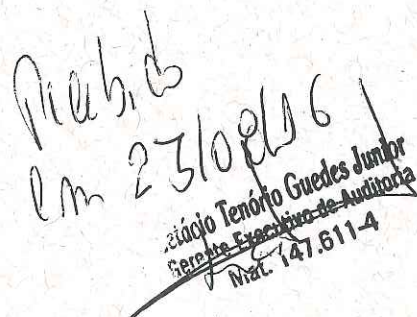 Recebido
em 23/08/16
etácio Tenório Guedes Junior
Gerente Executivo de Auditoria
Mat. 147.611-4